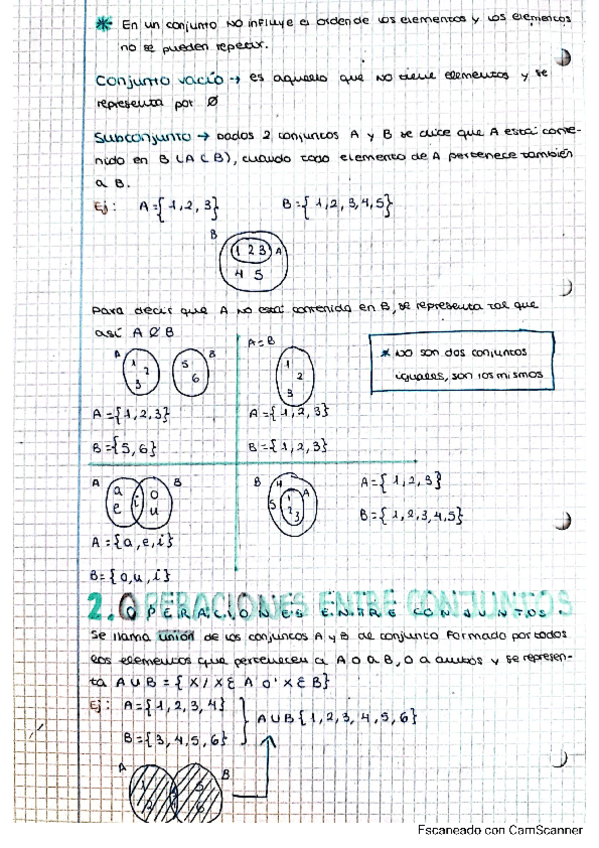 * En un conjunto NO influye el orden de los elementos y los elementos
no se pueden repetir.
Conjunto vacío → es aquello que NO tiene elementos y se
representa por Ø
Subconjunto → Dados 2 conjuntos A y B se dice que A está conte-
nido en B (A ⊂ B), cuando todo elemento de A pertenece también
a B.
Ej: A={1,2,3} B={1,2,3,4,5}
B
1 2 3 A
4 5
Para decir que A NO está contenido en B, se representa tal que
así A ⊄ B
A 1 2 3 5 6 B
A = B
1 2 3
* NO son dos conjuntos
iguales, son los mismos
A={1,2,3}
B={5,6}
A={1,2,3}
B={1,2,3}
A a e i o u B
B 4 5 1 2 3 A
A={1,2,3}
B={1,2,3,4,5}
A={a,e,i}
B={o,u,i}
2. OPERACIONES ENTRE CONJUNTOS
Se llama unión de los conjuntos A y B al conjunto formado por todos
los elementos que pertenecen a A o a B, o a ambos y se represen-
ta A ∪ B = {x/x ∈ A o x ∈ B}
Ej: A={1,2,3,4}
B={3,4,5,6}
A∪B{1,2,3,4,5,6}
A B
1 2 5 6
Escaneado con CamScanner